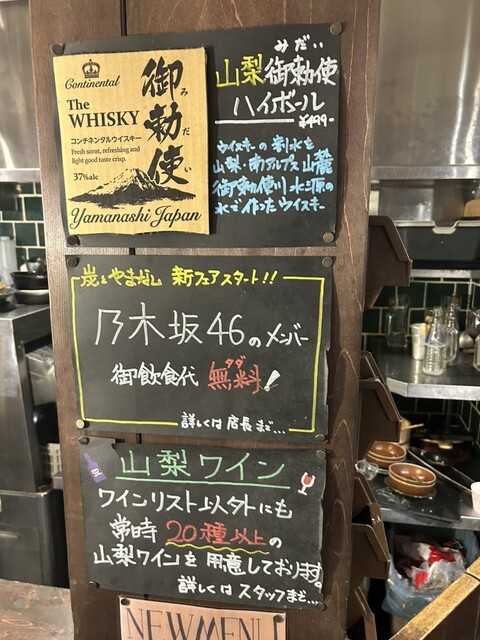 Continental
The
WHISKY
コンチネンタルウイスキー
Fresh scent, refreshing and
light good taste crisp.
37%alc
御勅使
みだい
Yamanashi Japan
みだい
山梨御勅使
ハイボール
¥499-
ウイスキーの割水を
山梨・南アルプス山麓
御勅使川水源の
水で作ったウイスキー
炭とやまなし 新フェアスタート!!
乃木坂46のメンバー
タダ
御飲食代 無料!
詳しくは店長まで…
山梨ワイン
ワインリスト以外にも
常時 20種以上の
山梨ワインを用意しております。
詳しくはスタッフまで…
NEW MENU